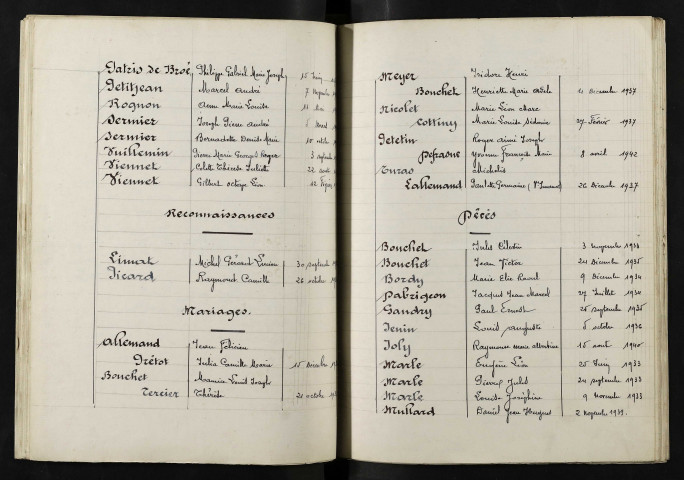 Patris de Broé Philippe Gabriel Marie Joseph 15 Juin
Petitjean Marcel André 7
Rognon Anne Marie Louise
Sermier Joseph Pierre André
Sermier Bernadette Denise Marie 10 octobre
Vuillemin Pierre Marie Georges 3 septembre
Viennet Colette Thérèse Juliette 22 août
Viennet Gilbert octave Léon 12
Reconnaissances
Limat Michel Gérard Lucien 30 septembre
Picard Raymond Camille 26 octobre
Mariages.
Allemand Jean Félicien
Prétot Julia Camille Marie 15
Bouchet Maurice Louis Joseph
Tercier Thérèse 21 octobre
Meyer Isidore Henri
Bouchet Henriette Marie Adèle 4 décembre 1937
Nicolet Marie Léon Marc
Cottiny Marie Louise Sidonie 27 Février 1937
Petetin Roger Aimé Joseph
Defrasne Yvonne Marie 8 avril 1942
Lallemand Paulette Germaine 26 Décembre 1937
Décés
Bouchet Jules Célestin 3 novembre 1934
Bouchet Jean Victor 24 Décembre 1935
Bordy Marie Elie Raoul 9 Décembre 1934
Dabrigeon Jacques Jean Marcel 27 Juillet 1934
Gandry Paul Ernest 26 septembre 1935
Jenin Louis Auguste 5 octobre 1936
Joly Raymonde Marie Albertine 15 août 1940
Marle Eugène Léon 25 Juin 1933
Marle Pierre Jules 24 septembre 1933
Marle Louise Joséphine 9 novembre 1933
Mullard Daniel Jean 2 novembre 1939.